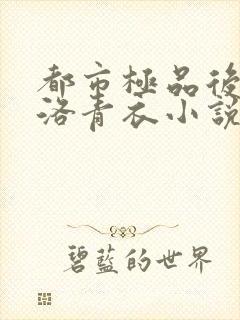 都市極品後
洛青衣小說
碧藍的世界